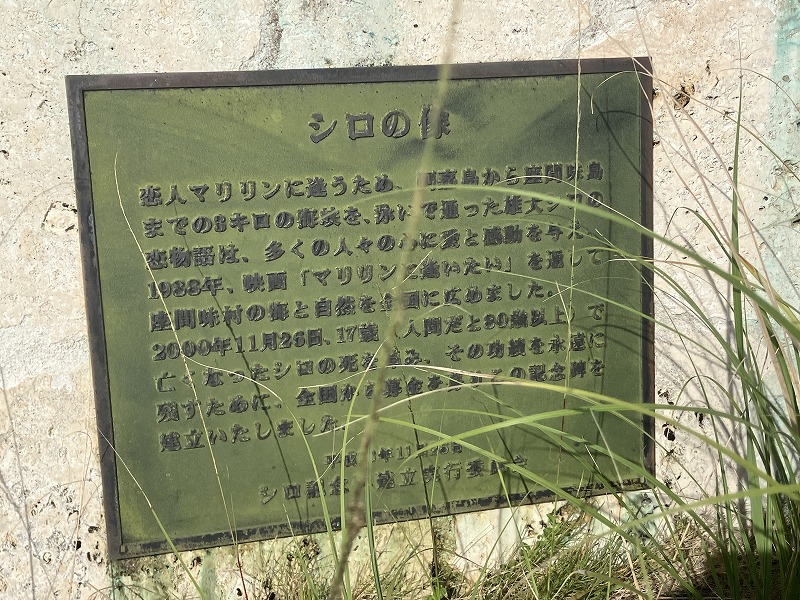 シロの像
恋人マリリンに逢うため、阿嘉島から座間味島
までの3キロの海峡を、泳いで通った雄犬シロの
恋物語は、多くの人々の心に愛と感動を与え、
1988年、映画「マリリンに逢いたい」を通して
座間味村の海と自然を全国に広めました。
2000年11月26日、17歳（人間だと80歳以上）で
亡くなったシロの死を 、その功績を永遠に
残すために、全国から募金を の記念碑を
建立いたしました。
年11月 日
シロ記念 建立実行委員会